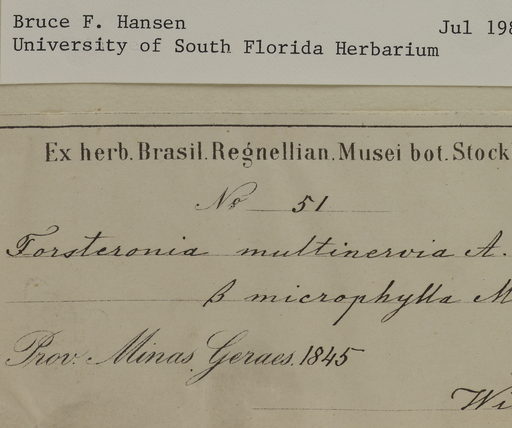 Bruce F. Hansen Jul 198
University of South Florida Herbarium
Ex herb. Brasil. Regnellian. Musei bot. Stock
No 51
Forsteronia multinervia A.
β microphylla M
Prov. Minas Geraes. 1845
Wi